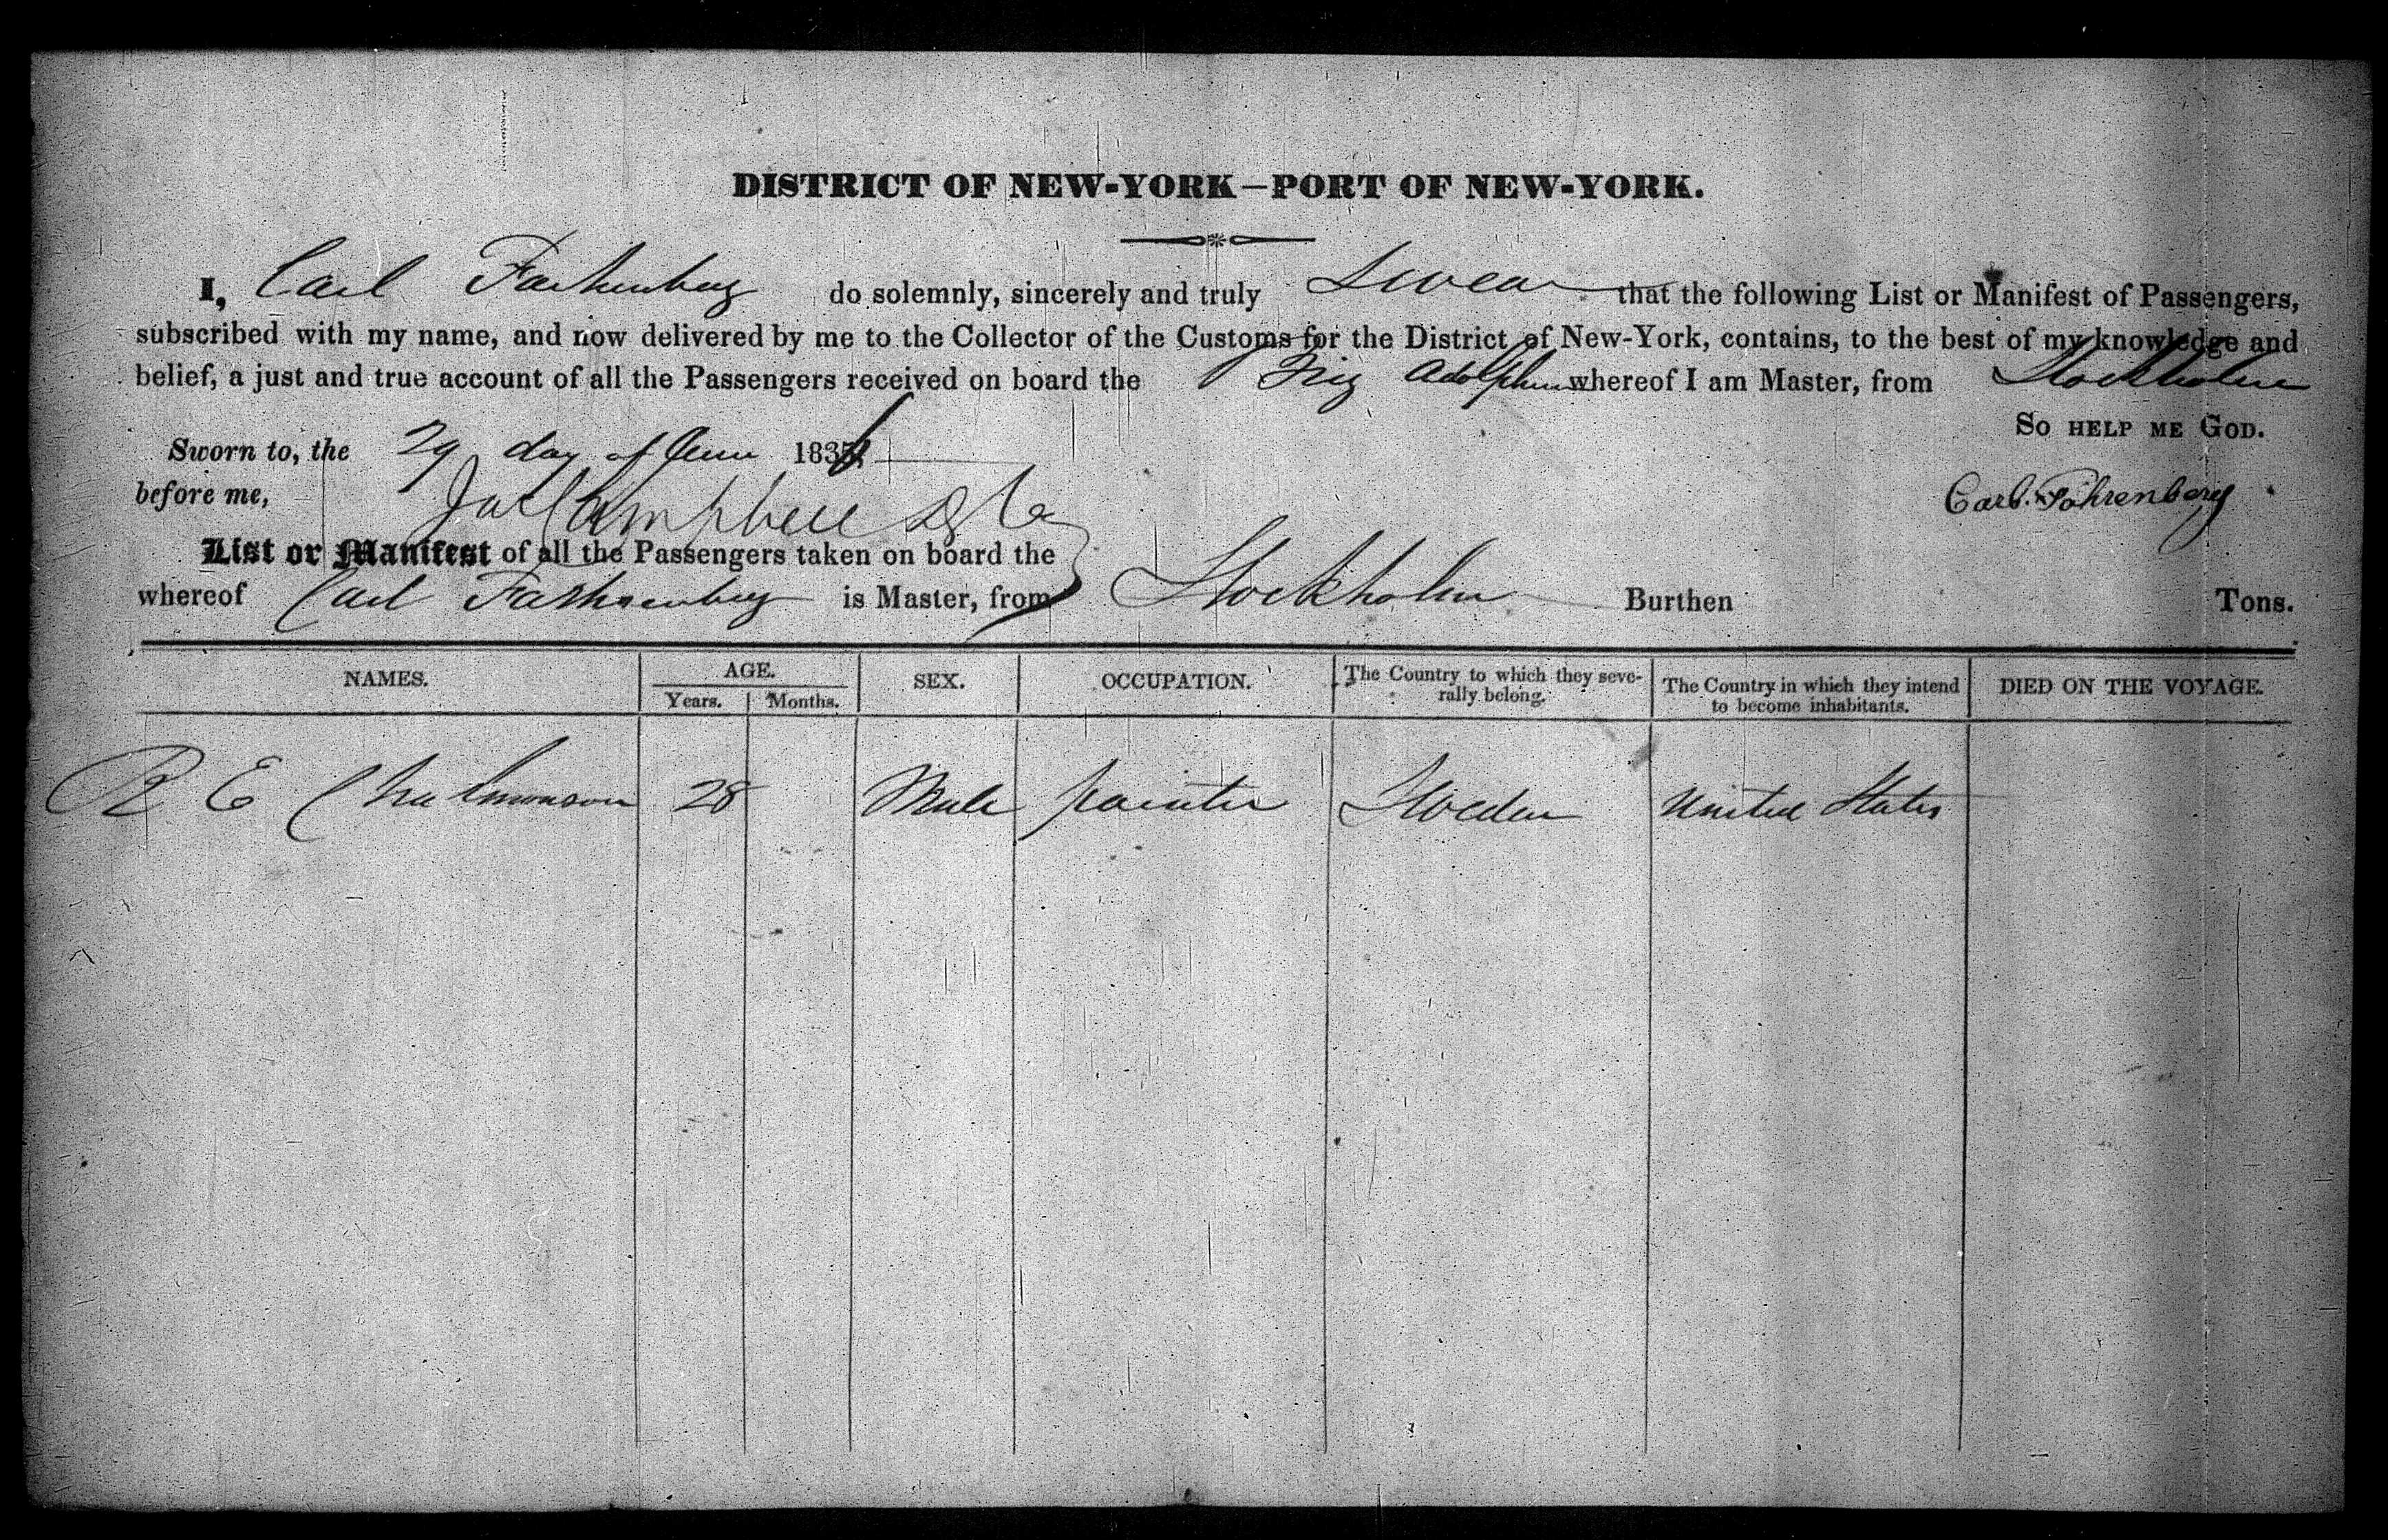 DISTRICT OF NEW-YORK—PORT OF NEW-YORK.
I, Carl Fashenberg do solemnly, sincerely and truly Swear that the following List or Manifest of Passengers,
subscribed with my name, and now delivered by me to the Collector of the Customs for the District of New-York, contains, to the best of my knowledge and
belief, a just and true account of all the Passengers received on board the Brig Adolphus whereof I am Master, from Stockholm
So HELP ME GOD.
Sworn to, the 29 day of June 1836
before me, Campbell
Carl Fahrenberg
List or Manifest of all the Passengers taken on board the
whereof Carl Fashenberg is Master, from Stockholm Burthen Tons.
NAMES. AGE. Years. Months. SEX. OCCUPATION. The Country to which they severally belong. The Country in which they intend to become inhabitants. DIED ON THE VOYAGE.
R E 28 Male painter Sweden United States